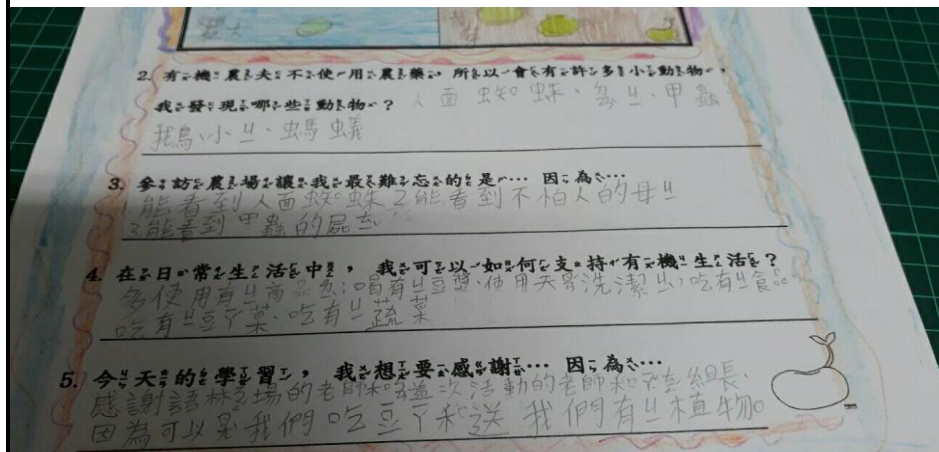 2. 有機農夫不使用農藥，所以會有許多小動物，
我發現哪些動物？人面蜘蛛、ㄐ、甲蟲
鳥、小ㄐ、螞蟻
3. 參訪農場讓我最難忘的是…因為…
1.能看到人面蜘蛛 2.能看到不怕人的母ㄐ
3.能看到甲蟲的屍
4. 在日常生活中，我可以如何支持有機生活？
多使用有ㄐ商品:喝有ㄐ豆漿、使用天 洗潔 、吃有ㄐ食品
吃有ㄐ豆ㄚ菜、吃有ㄐ蔬菜
5. 今天的學習，我想要感謝…因為…
感謝 場的老師和 這次活動的老師和 組長、
因為可以 我們吃豆ㄚ和送我們有ㄐ植物。